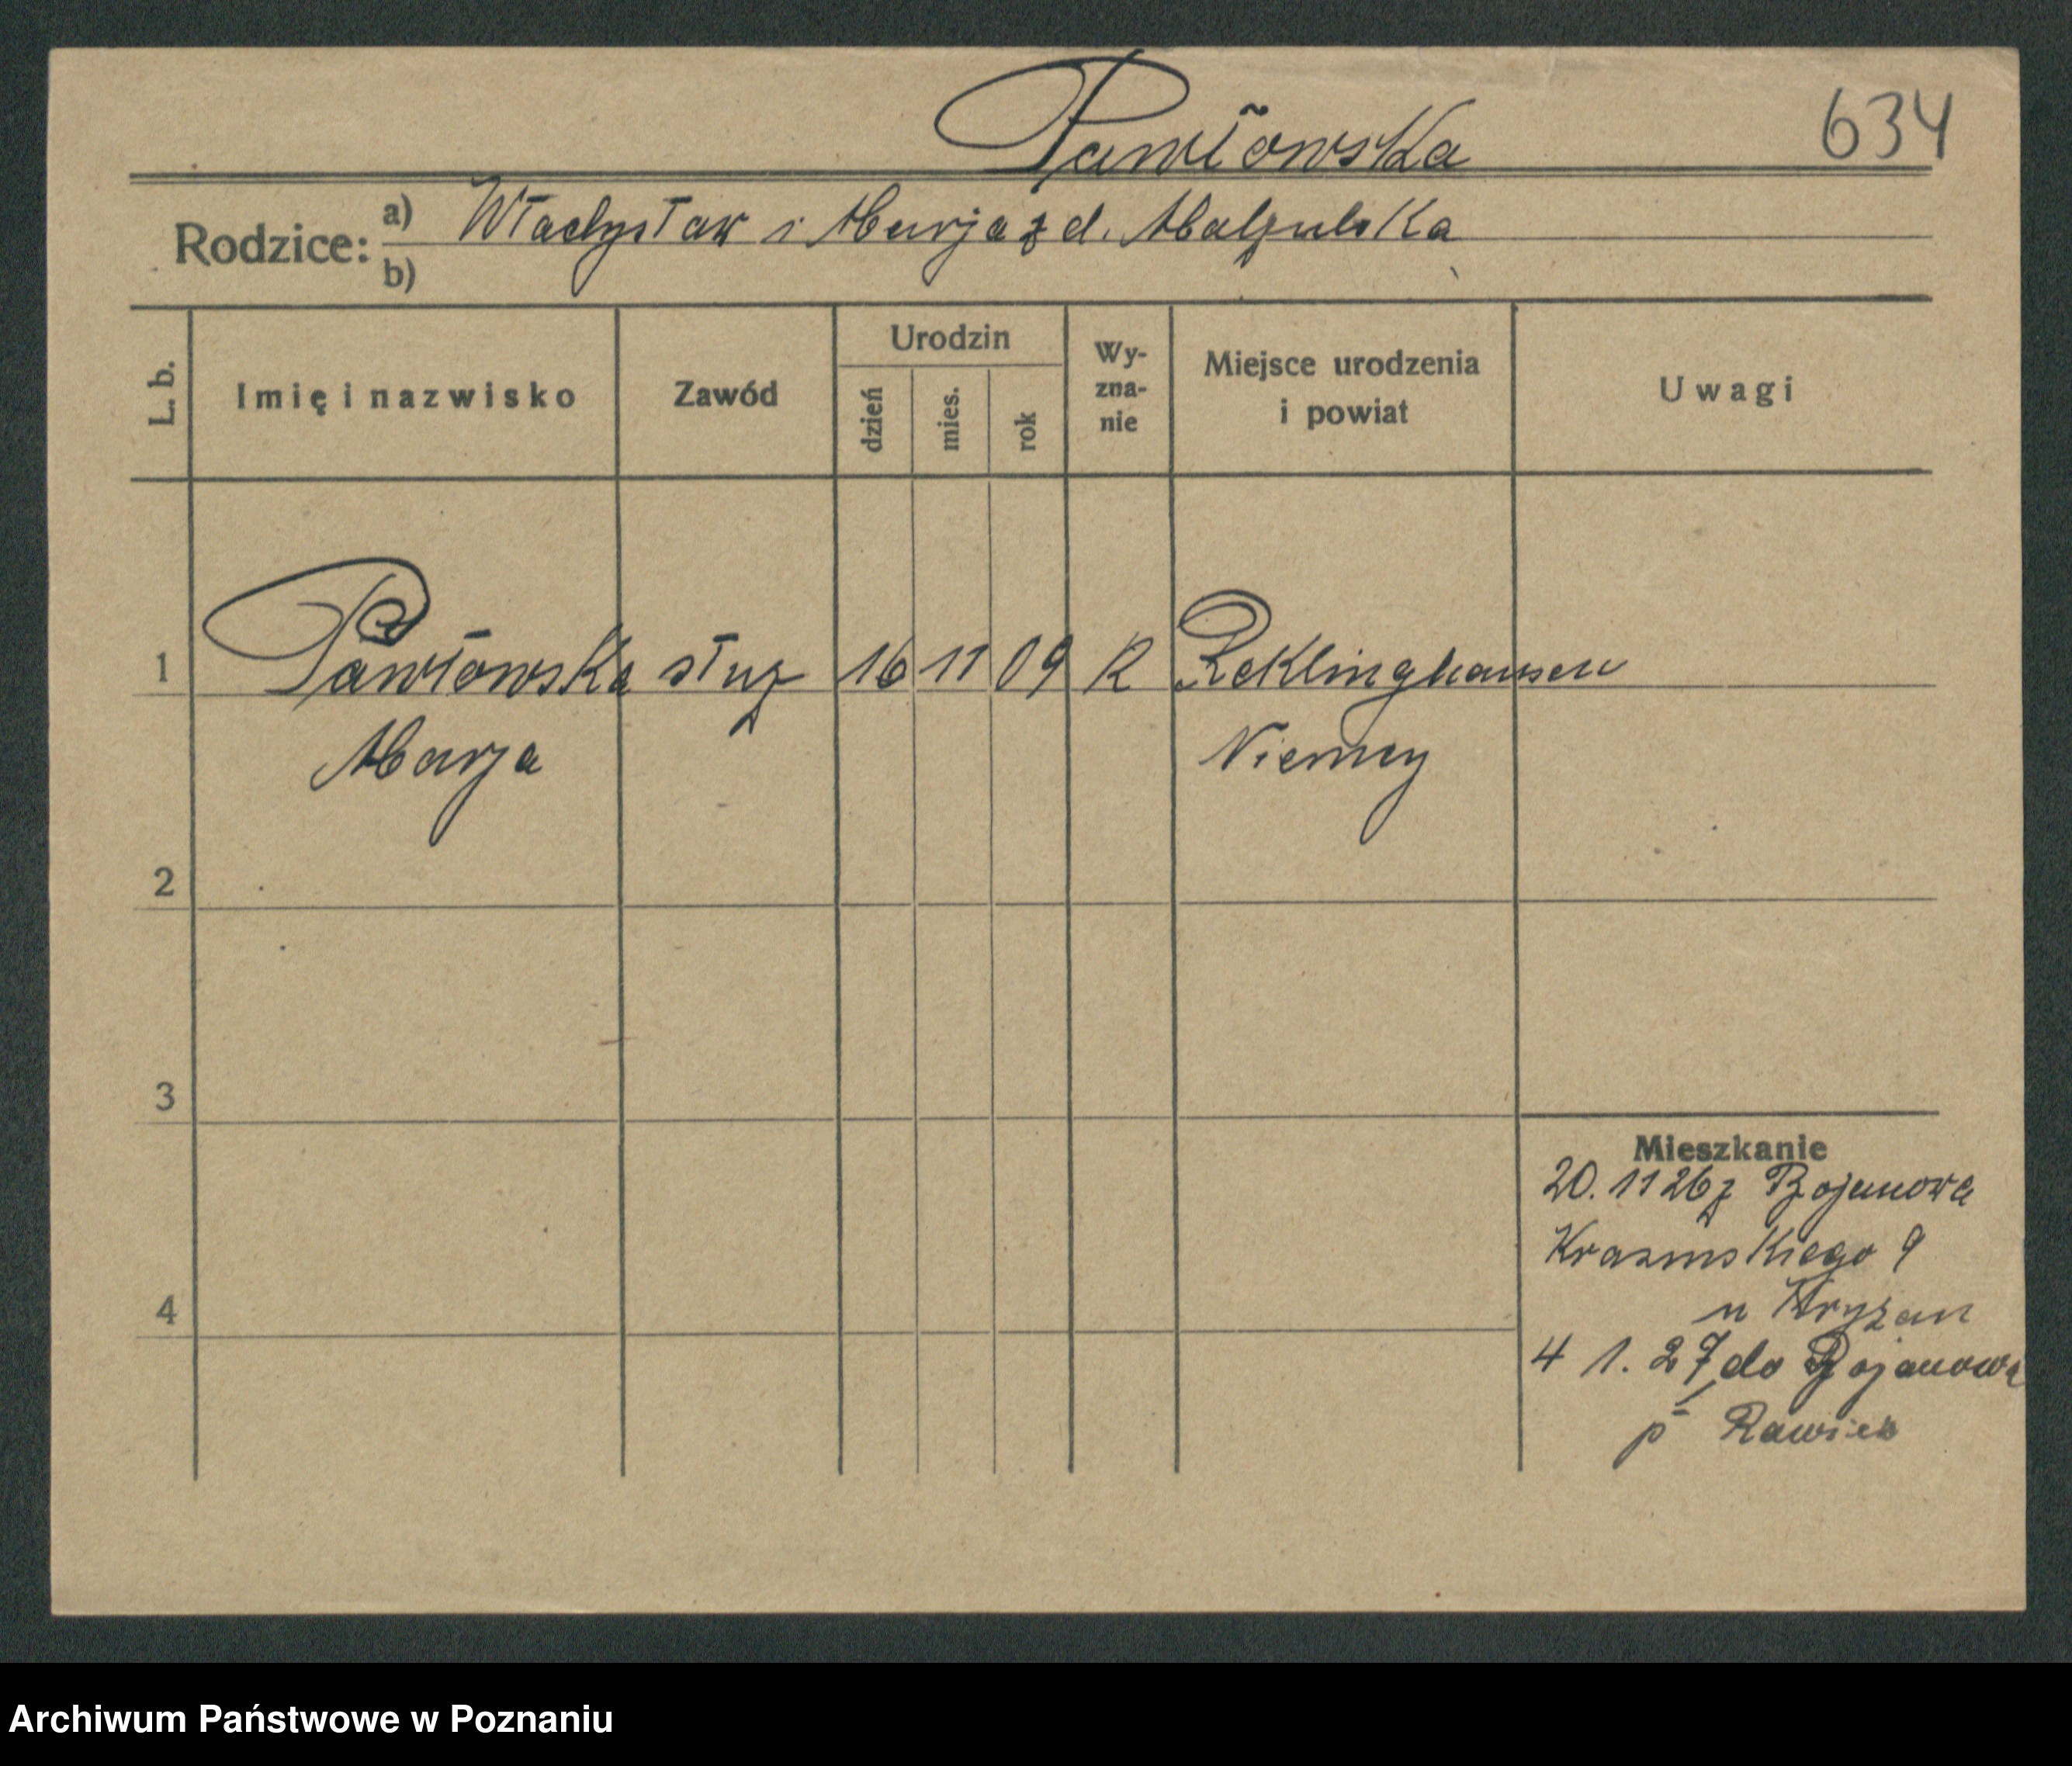 Pawłowska
634
Rodzice: a) Władysław i Marja z d.
b)
L. b. Imię i nazwisko Zawód Urodzin dzień mies. rok Wy-zna-nie Miejsce urodzenia i powiat Uwagi
1 Pawłowska służ 16 11 09 R Reklinghausen
Marja Niemcy
2
3
4
Mieszkanie
20. 11 26 z Bojanowa
Krasinskiego 9
u Kryzan
4 1. 27 do Bojanowa
p Rawicz
Archiwum Państwowe w Poznaniu